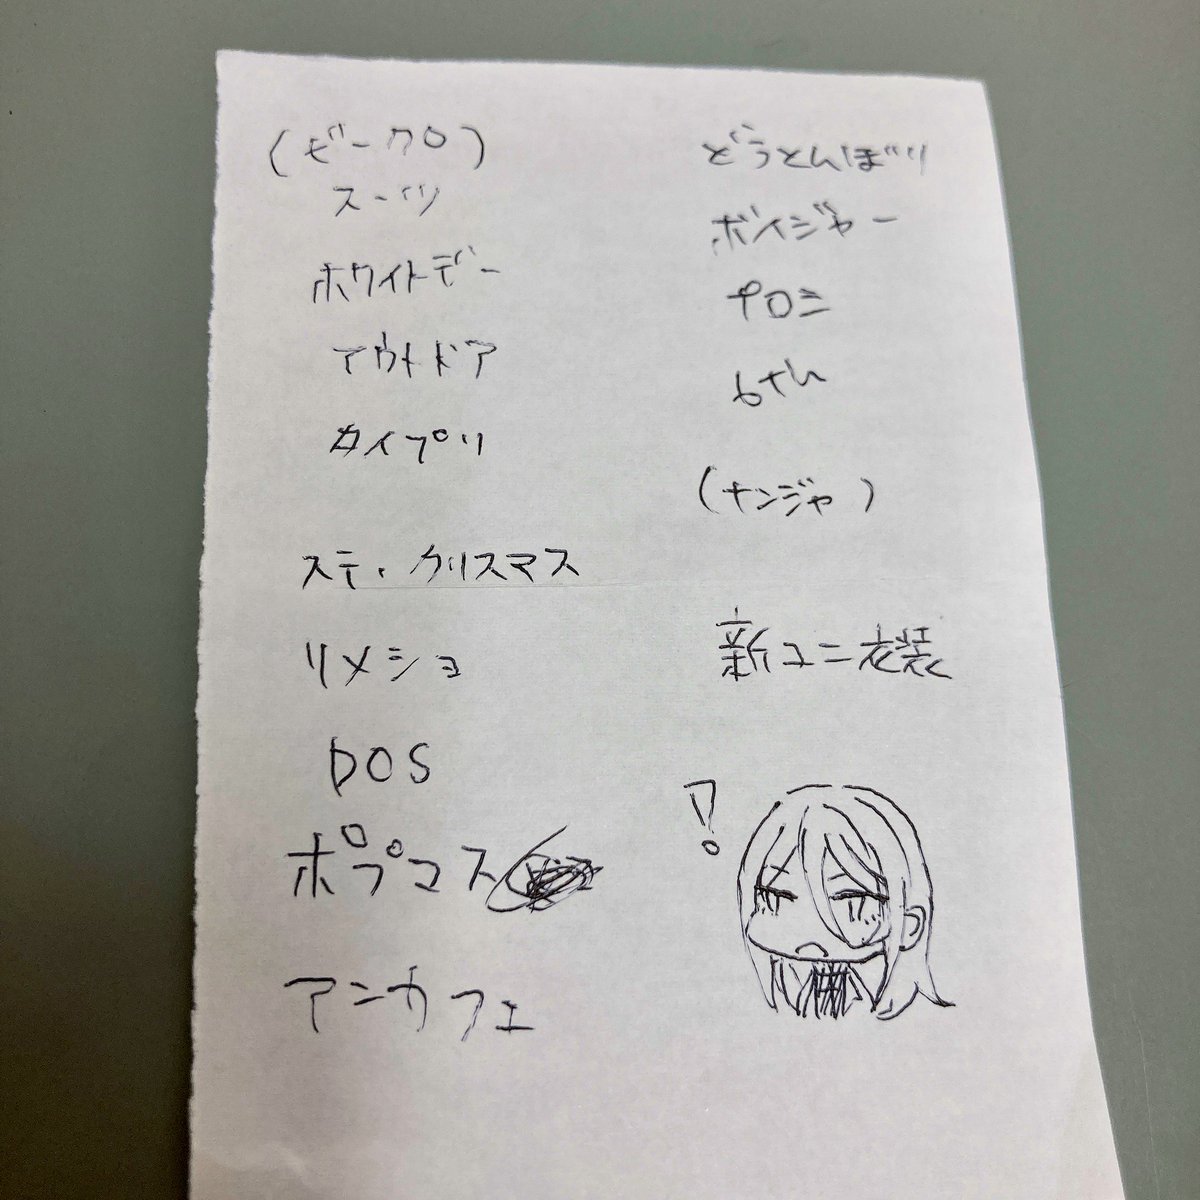 (ゼークロ)
スーツ
ホワイトデー
アウトドア
カイプリ
ステ.クリスマス
リメショ
DOS
ポプマス
アンカフェ
どうとんぼり
ボイジャー
プロミ
(ナンジャ)
新ユニ衣装
?